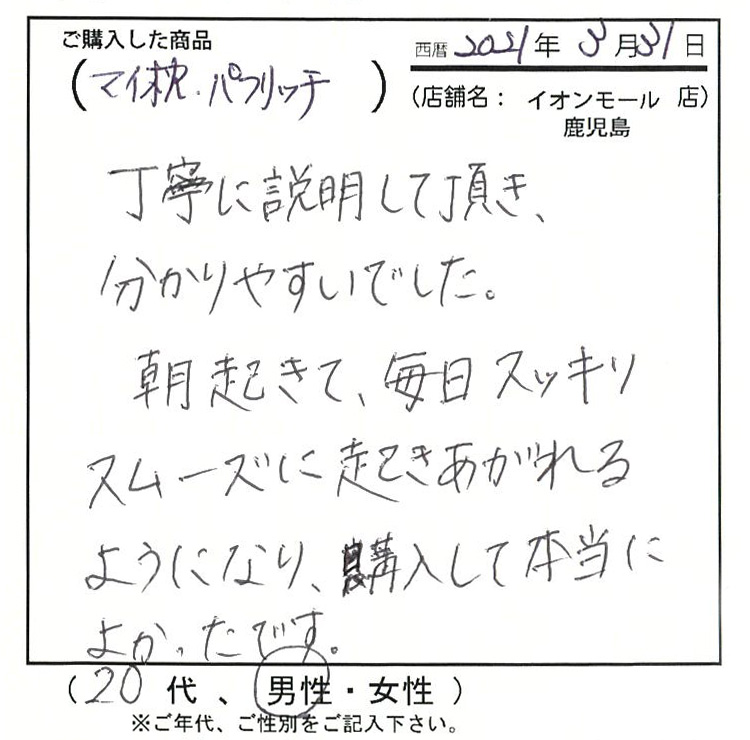 ご購入した商品
西暦 2021年 3月31日
(マイ枕・パフリッチ)
(店舗名: イオンモール 店)
鹿児島
丁寧に説明して頂き、
分かりやすいでした。
朝起きて、毎日スッキリ
スムーズに起きあがれる
ようになり、購入して本当に
よかったです。
(20 代、男性・女性)
※ご年代、ご性別をご記入下さい。